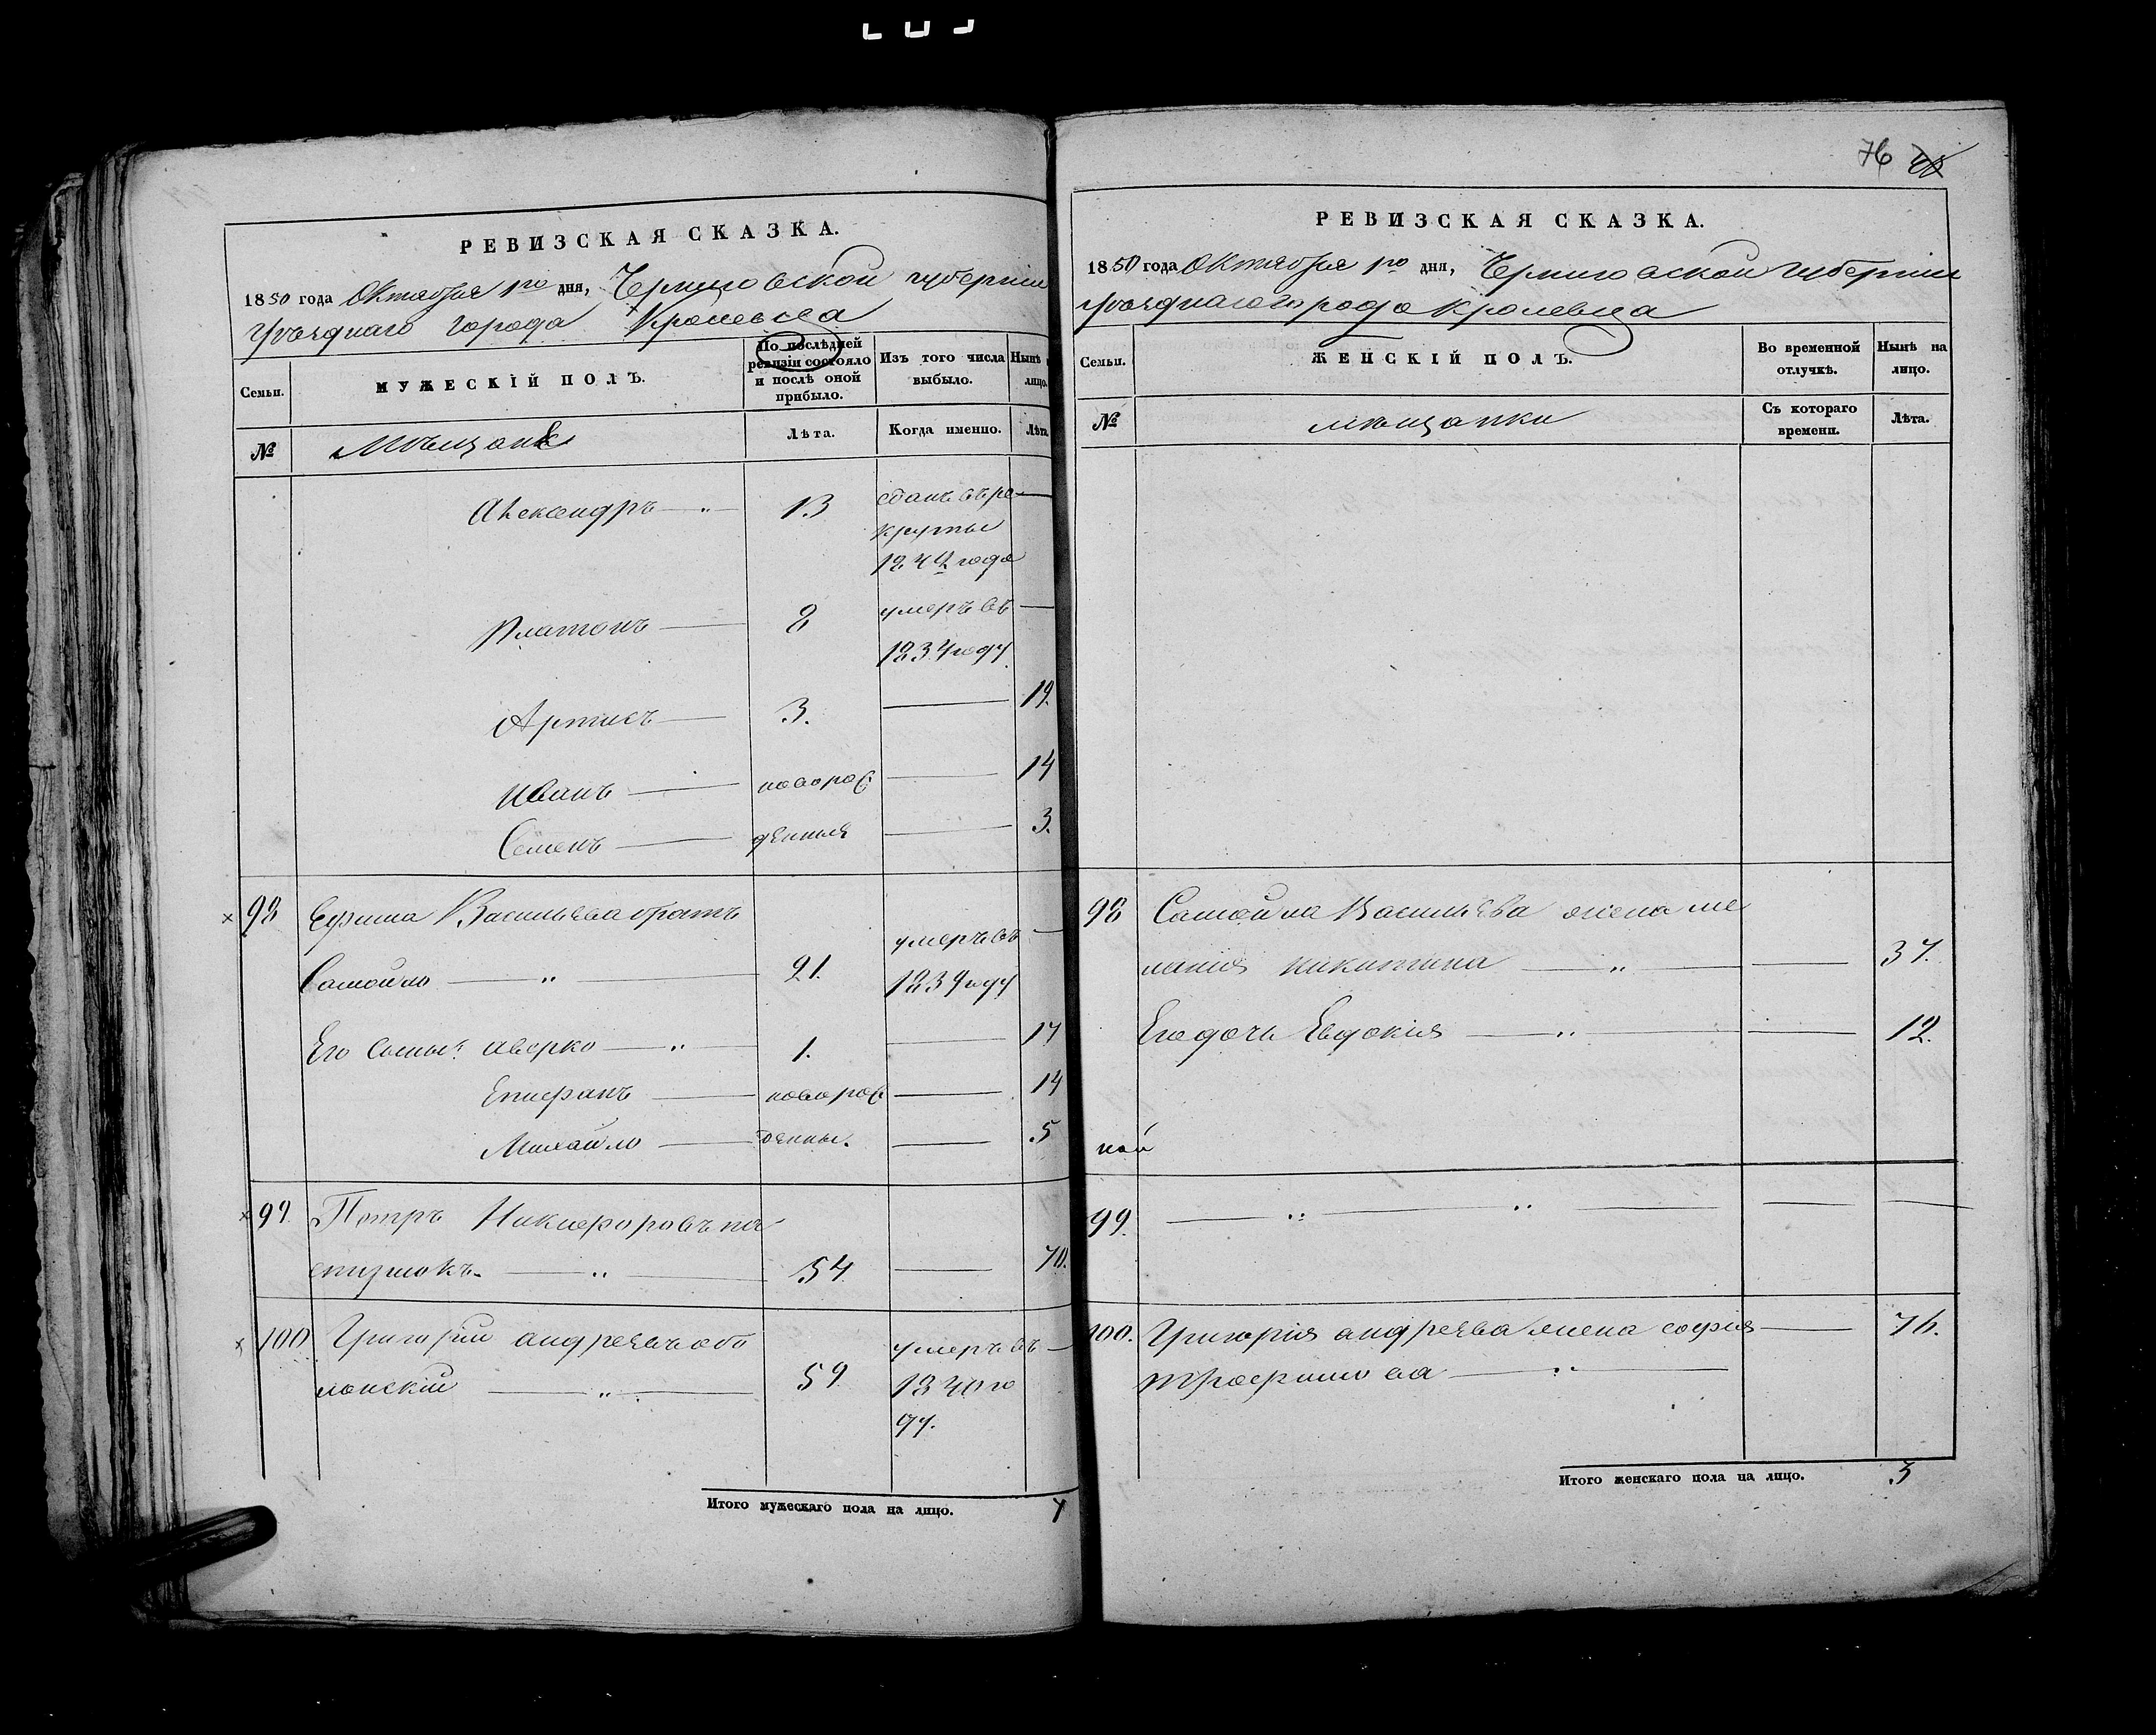 РЕВИЗСКАЯ СКАЗКА.
1850 года Октября 1го дня, Черниговской губернии
уѣзднаго города Кролевца
Семьи.
МУЖЕСКІЙ ПОЛЪ.
По послѣдней ревизіи состояло и послѣ оной прибыло.
Изъ того числа выбыло.
Нынѣ
лицо.
№
Мѣщане
Лѣта.
Когда именно.
Лѣта
Александръ 13 сданъ въ ре
круты
1844 года
Платонъ 8 умеръ въ
1834 году
Артисъ 3. 19.
Иванъ новорож 14
Семенъ денныя 3.
98 Ефима Васильева братъ
Самойло 21. умеръ въ
1839 году
Его сыны: Аверко 1. 17
Епифанъ новорож 14
Михайло денны. 5
99. Петръ Никифоровъ па
сизнокъ. 54 70.
100 Григорій Андреевъ обо
лонскій 59 умеръ въ
1840 го
ду.
Итого мужескаго пола на лицо. 7
76
РЕВИЗСКАЯ СКАЗКА.
1850 года Октября 1го дня, Черниговской губерніи
уѣзднаго города Кролевца
Семьи.
ЖЕНСКІЙ ПОЛЪ.
Во временной отлучкѣ.
Нынѣ на лицо.
№
мѣщанки
Съ котораго времени.
Лѣта.
98 Самойла Васильева жена ме
ланія Никитина 37.
Его дочь Евдокія 12.
ной
99.
100. Григорія Андреева жена Софія 76.
Трофимова
Итого женскаго пола на лицо. 3